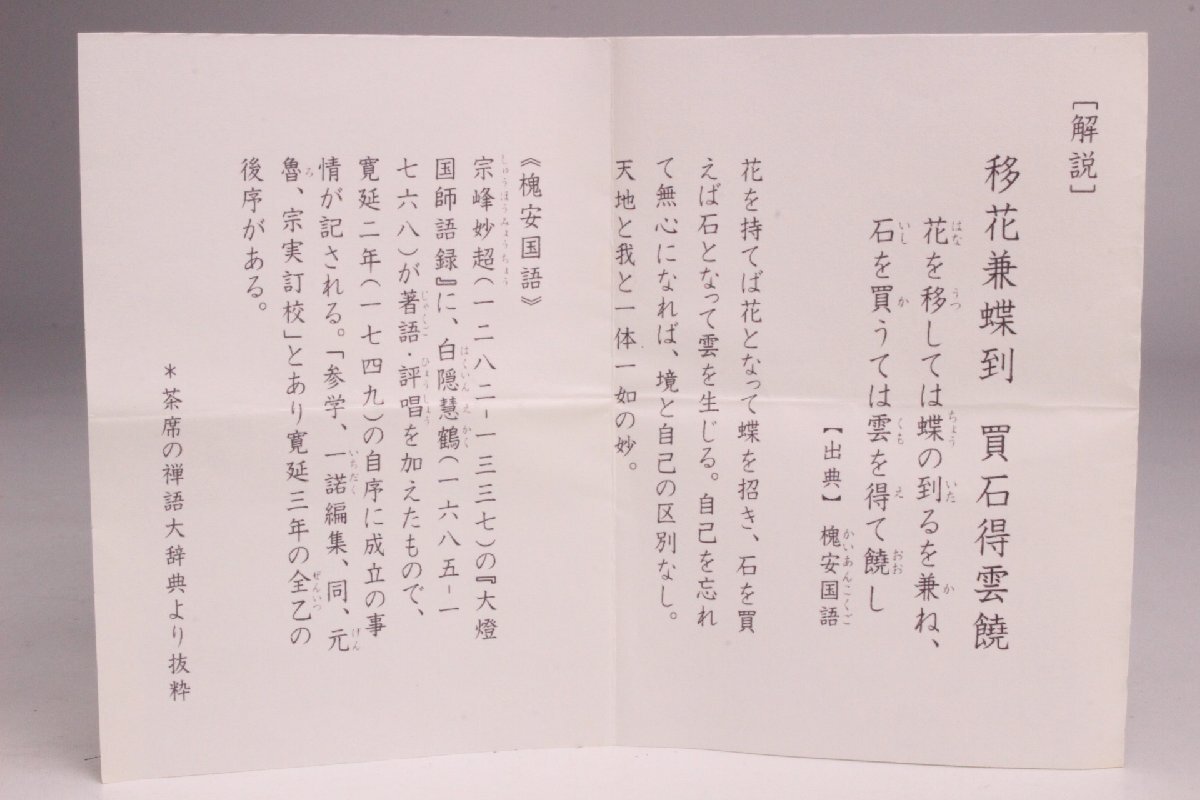 ［解説］
移花兼蝶到　買石得雲饒
花を移しては蝶の到るを兼ね、
石を買うては雲を得て饒し
【出典】　槐安国語
花を持てば花となって蝶を招き、石を買
えば石となって雲を生じる。自己を忘れ
て無心になれば、境と自己の区別なし。
天地と我と一体一如の妙。
《槐安国語》
宗峰妙超（一二八二-一三三七）の『大燈
国師語録』に、白隠慧鶴（一六八五-一
七六八）が著語・評唱を加えたもので、
寛延二年（一七四九）の自序に成立の事
情が記される。「参学、一諾編集、同、元
魯、宗実訂校」とあり寛延三年の全乙の
後序がある。
＊茶席の禅語大辞典より抜粋